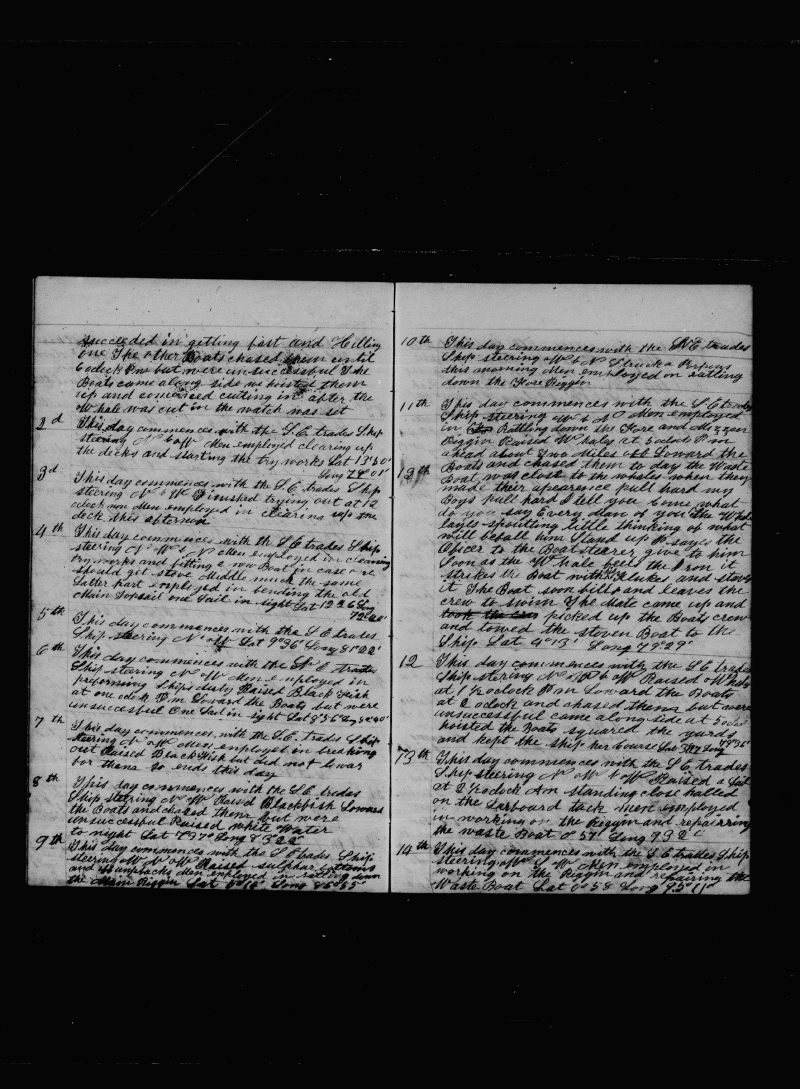 succeeded in getting fast and Killing
one The other Boats chased them until
6 oclock P.m but were unsuccessful The
Boats came along side we hoisted them
up and comenced cutting in after the
Whale was cut in the watch was set
2 d This day commences with the S.E trades Ship
steering N b W Men employed clearing up
the decks and starting the try works Lat 13°50'
Long 74°01'
3 d This day commences with the S.E trades Ship
steering N b W Finished trying out at 12
oclock men employed in clearing up the
deck this afternoon
4 th This day commences with the S.E trades Ship
steering N W b N Men employed in cleaning
try works and fitting a new Boat in case we
should get stove Middle much the same
Latter part employed in bending the old
Main Topsail one Sail in sight Lat 12°26 Long
5 th This day commences with the S.E trades
Ship steering N W Lat 9°36' Long 81°22'
6 th This day commences with the S.E trades
Ship steering N W Men employed in
preforming Ships duty Raised Black Fish
at one oclock P.m Loward the Boats but were
unsuccessful One Sail in sight Lat 8°56' Long
7 th This day commences with the S.E. trades Ship
steering N W Men employed in breaking
out Raised Black Fish but did not lowar
for them so ends this day
8 th This day commences with the S.E trades
Ship steering N W Raised Blackfish Loward
the Boats and chased them but were
unsuccessful Raised white water
to night Lat 7°37" Long 83°22'
9 th This day commences with the S E trades Ship
steering W N W Raised sulphur bottoms
and Humpbacks Men employed in ratling down
the Main Riggin Lat 5°16' Long 85°55'
10 th This day commences with the S.E trades
Ship steering W b N Struck a Porpois
this morning Men employed in ratling
down the Fore Riggin
11 th This day commences with the S.E trades
Ship steering W b N Men employed
in Ratling down the Fore and Mizzen
Riggin Raised Whales at 5 oclock P.m
ahead about Two Miles off Loward the
Boats and chased them to day the Waste
Boat was close to the whales when they
made their apearence pull hard my
Boys pull hard I tell you Come what
do you say Every man of you The Whale
layes spouting little thinking of what
will befall him Stand up says the
Oficer to the Boatsteerer give to him
Soon as the Whale feels the Iron it
strikes the Boat with its flukes and stoves
it The Boat soon fills and leaves the
crew to swim The Mate came up and
took the picked up the Boats crew
and towed the stoven Boat to the
Ship Lat 4°13' Long 79°29'
12 This day commences with the S.E trades
Ship steering N W b W Raised Whales
at 1 ½ oclock P.m Loward the Boats
at 2 oclock and chased them but were
unsuccessful came along side at 5 oclock
hoisted the Boats squared the yards
and kept the ship her Course Lat Long
13 th This day commences with the S.E trades
Ship steering N W b W Raised a Sail
at 2 ½ oclock A.m standing close halled
on the Larboard tack Men employed
in working on the Riggin and repairring
the waste Boat 0°57' Long 93 2'
14 th This day commences with the S.E trades Ship
steering W Men employed in
working on the Riggin and repairing the
Waste Boat Lat 0°58 Long 95°11'